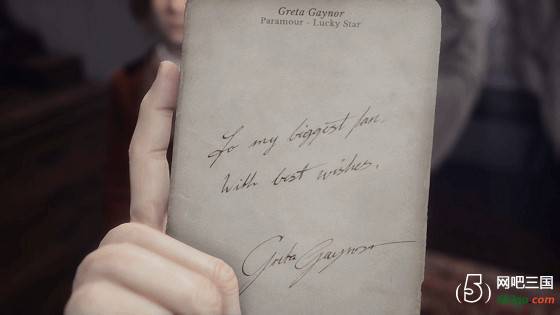 Greta Gaynor
Paramour - Lucky Star
To my biggest fan.
With best wishes.
Greta Gaynor
网吧三国